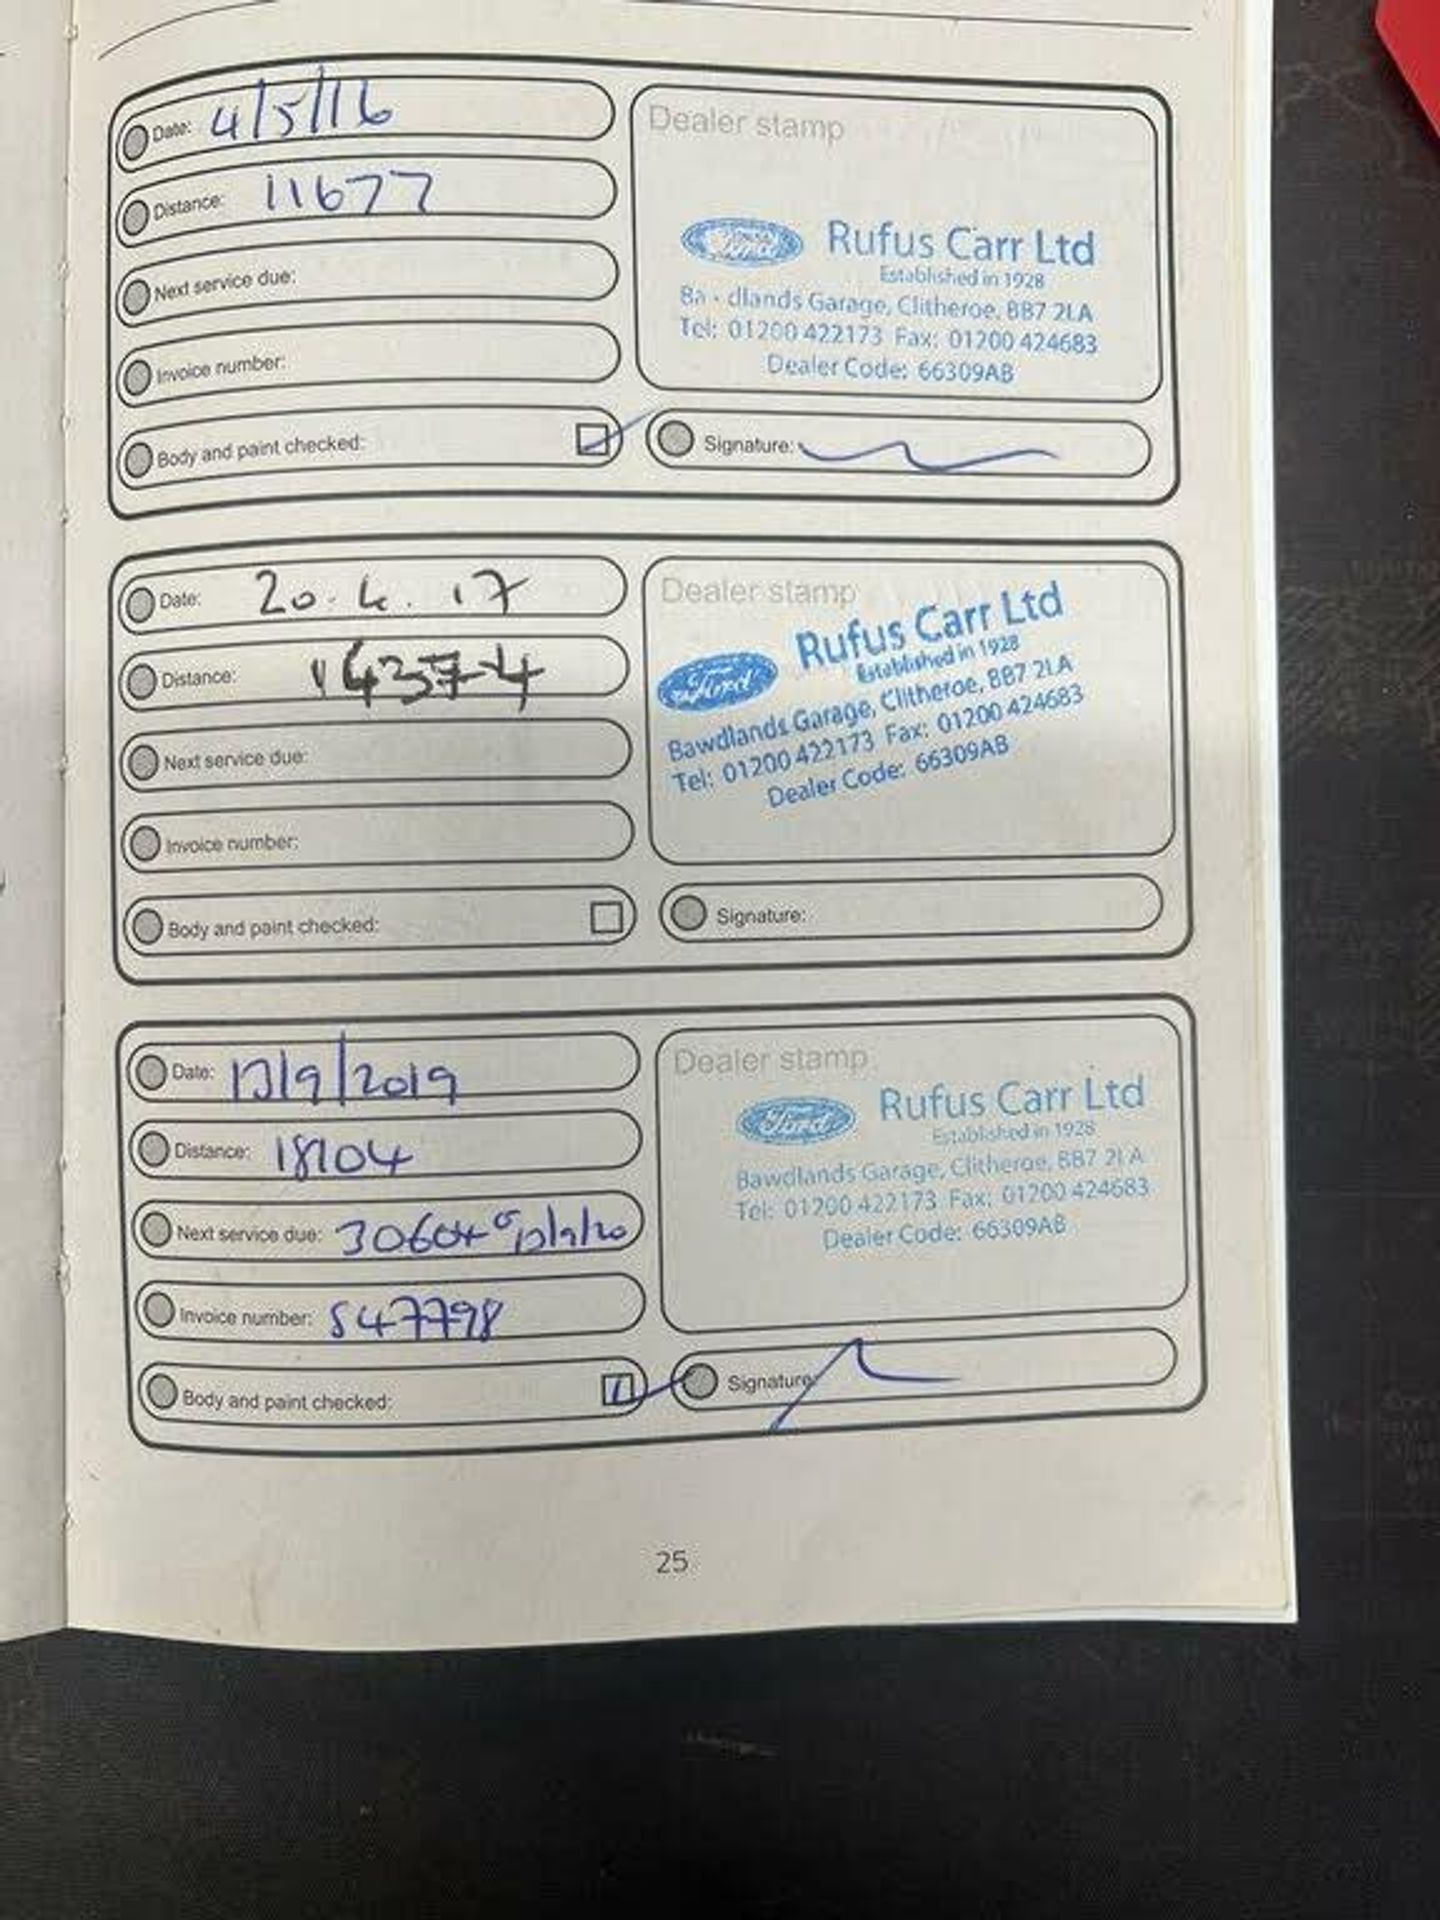 Date: 4/5/16
Distance: 11677
Next service due:
Invoice number:
Body and paint checked:
Dealer stamp
Ford
Rufus Carr Ltd
Established in 1928
Ba dlands Garage, Clitheroe, BB7 2LA
Tel: 01200 422173 Fax: 01200 424683
Dealer Code: 66309AB
Signature:
Date: 20.4.17
Distance: 14374
Next service due:
Invoice number:
Body and paint checked:
Dealer stamp
Ford
Rufus Carr Ltd
Established in 1928
Bawdlands Garage, Clitheroe, BB7 2LA
Tel: 01200 422173 Fax: 01200 424683
Dealer Code: 66309AB
Signature:
Date: 12/9/2019
Distance: 18104
Next service due: 30604 or 12/9/20
Invoice number: 547798
Body and paint checked:
Dealer stamp
Ford
Rufus Carr Ltd
Established in 1928
Bawdlands Garage, Clitheroe, BB7 2LA
Tel: 01200 422173 Fax: 01200 424683
Dealer Code: 66309AB
Signature:
25